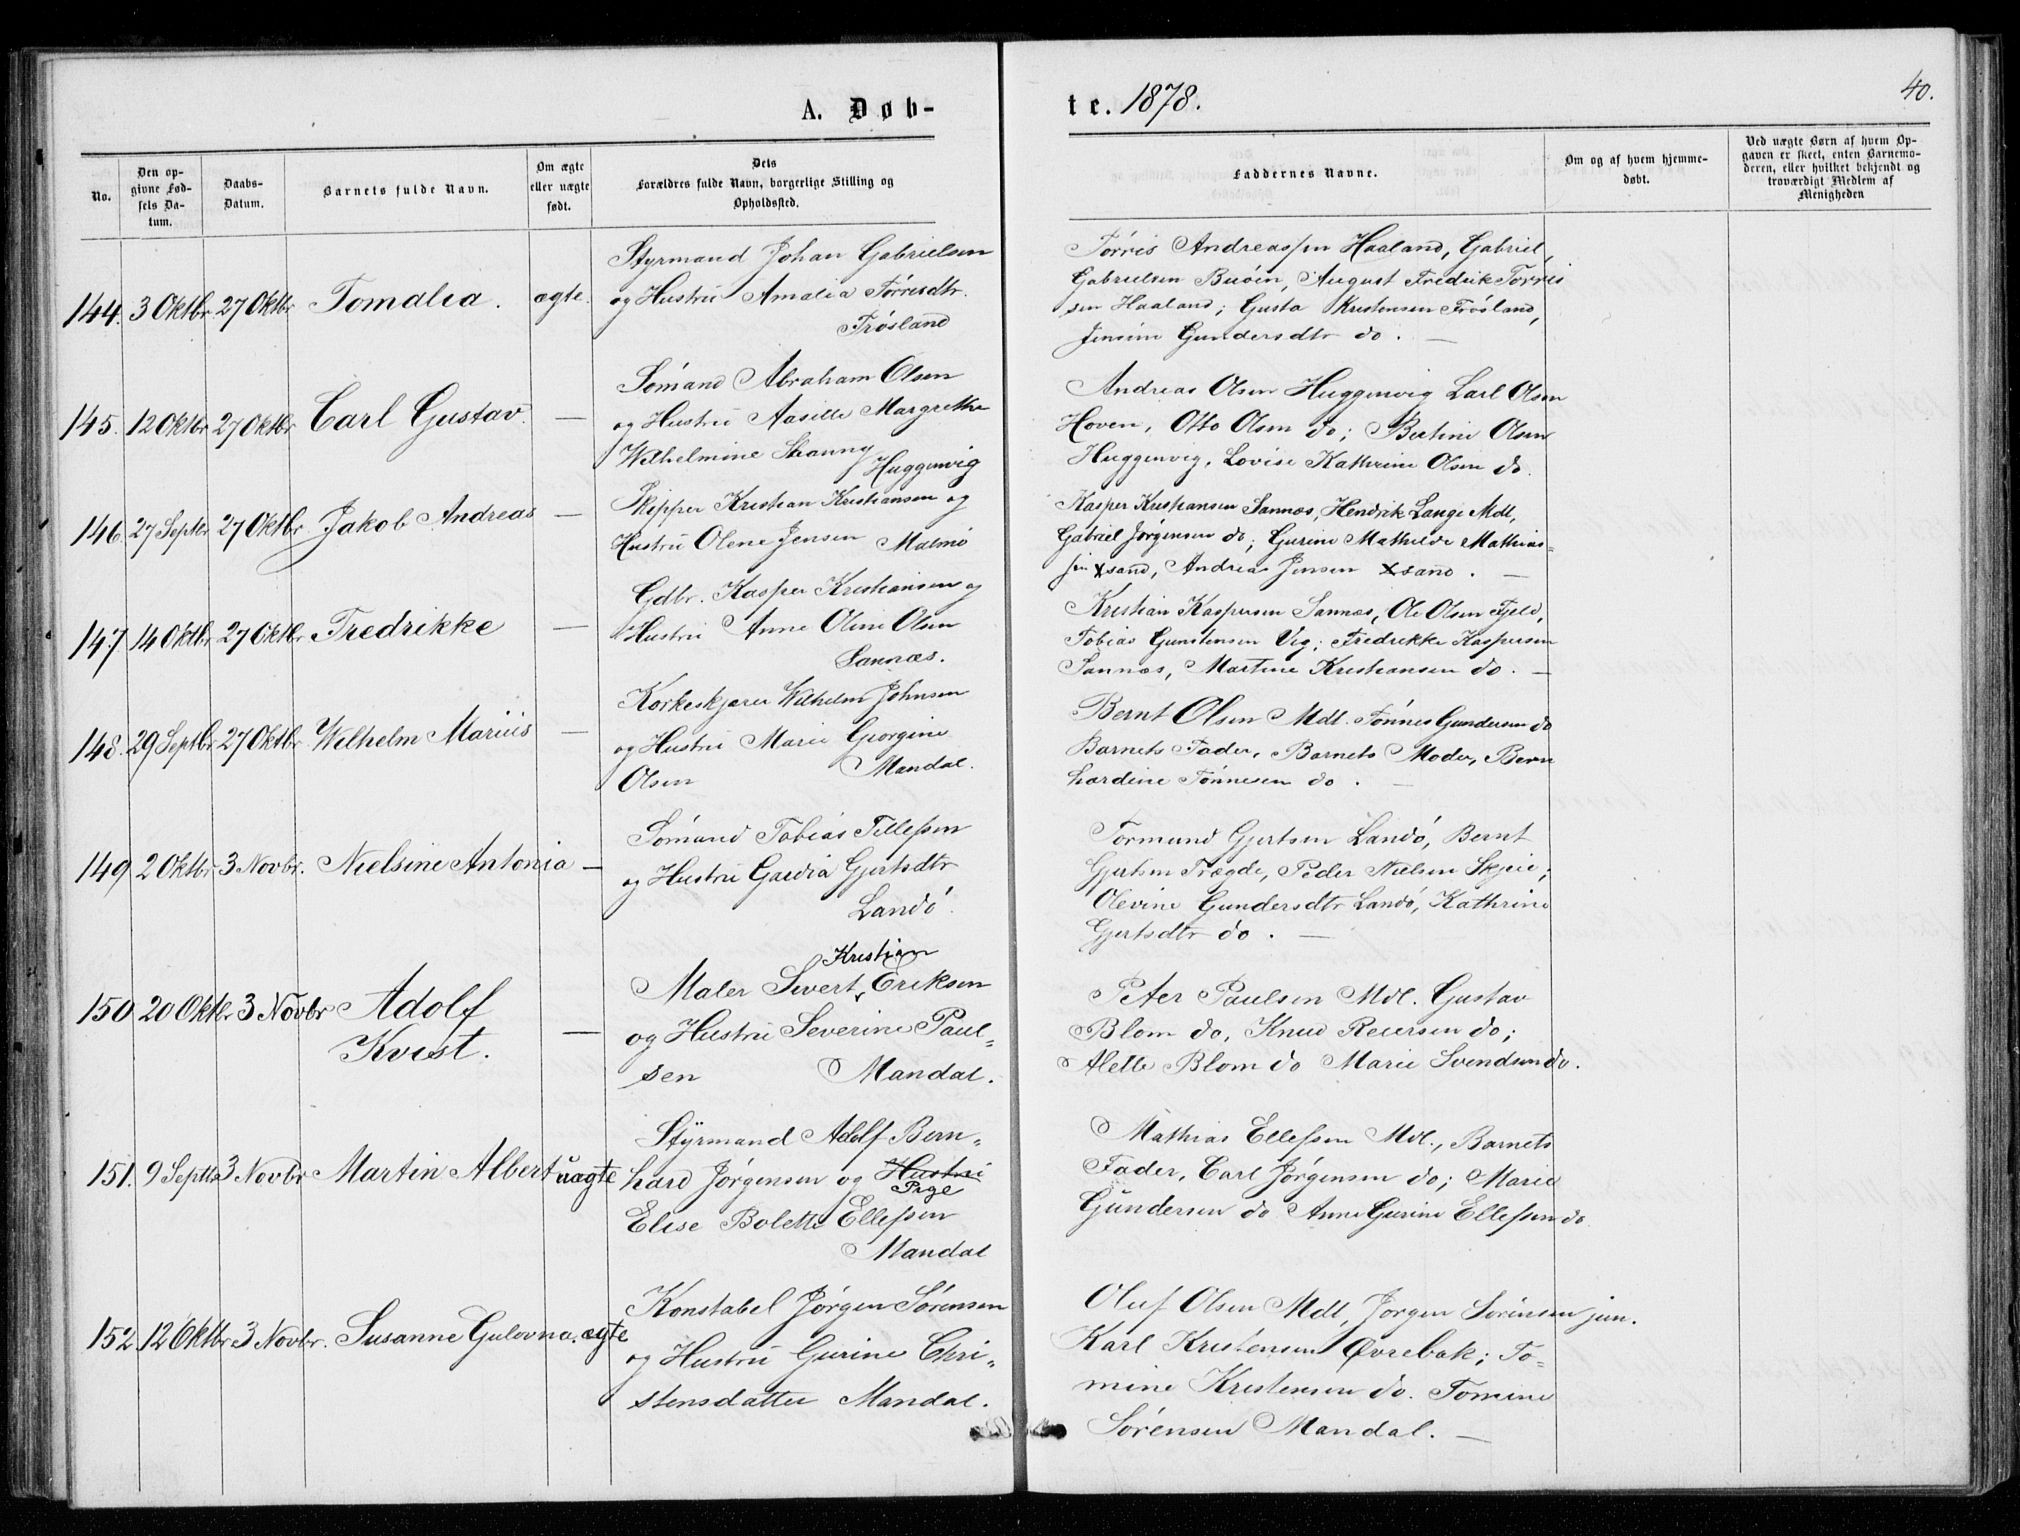 A. Døb-
te. 1878.
40.
No.
Den op-
givne Fød-
sels Da-
tum.
Daabs-
Datum.
Barnets fulde Navn.
Om ægte
eller uægte
født.
Dets
Forældres fulde Navn, borgerlige Stilling og
Opholdssted.
Faddernes Navne.
Om og af hvem hjemme-
døbt.
Ved uægte Børn af hvem Op-
gaven er skeet, enten Barnemo-
deren, eller hvilket bekjendt og
troværdigt Medlem af
Menigheden
144. 3 Oktbr 27 Oktbr Tomalia. ægte.
Styrmand Johan Gabrielsen
og Hustru Amalia Tørresdtr.
Frøsland
Tørris Andreassen Haaland, Gabriel
Gabrielsen Buøen, August Fredrik Torris
sen Haaland; Gusta Kristensen Frøsland,
Jensine Gundersdtr do. —
145. 12 Oktbr 27 Oktbr Carl Gustav. —
Sømand Abraham Olsen
og Hustru Aasille Margrethe
Wilhelmine Skaung
Huggenvig
Andreas Olsen Huggenvig Carl Olsen
Hoven, Otto Olsen do; Bertine Olsen
Huggenvig, Lovise Kathrine Olsen do.
146. 27 Septbr 27 Oktbr Jakob Andreas —
Skipper Kristian Kristiansen og
Hustru Olene Jensen Malmø
Kasper Kristiansen Sannæs, Hendrik Lange Mdl,
Gabriel Jørgensen do; Gurine Mathilde Mathias-
sen Xsand, Andreas Jensen Xsand. —
147. 14 Oktbr 27 Oktbr Fredrikke —
Gdbr. Kasper Kristiansen og
Hustru Anne Oline Olsen
Sannæs.
Kristian Kaspersen Sannæs, Ole Olsen Fjeld,
Tobias Gunstensen Vig; Fredrikke Kaspersen
Sannæs, Martine Kristiansen do. —
148. 29 Septbr 27 Oktbr Wilhelm Marius —
Korkeskjærer Wilhelm Johnsen
og Hustru Marie Georgine
Olsen Mandal.
Bernt Olsen Mdl. Tønnes Gundersen do
Barnets Fader, Barnets Moder, Bern
hardine Tønnesen do. —
149. 2 Oktbr 3 Novbr. Nielsine Antonia —
Sømand Tobias Tellefsen
og Hustru Gardia Gjertsdtr
Landø.
Tormund Gjertsen Landø, Bernt
Gjertsen Trægde, Peder Nielsen Skjeie;
Olevine Gundersdtr Landø, Kathrine
Gjertsdtr do. —
150. 20 Oktbr 3 Novbr Adolf
Kvist. —
Kristian
Maler Sivert Eriksen
og Hustru Severine Paul-
sen Mandal.
Peter Paulsen Mdl. Gustav
Blom do, Knud Reiersen do;
Alette Blom do Marie Svendsen do.
151. 9 Septbr 3 Novbr Martin Albert uægte
Styrmand Adolf Bern-
hard Jørgensen og Hustru
Pige
Elise Bolette Ellefsen
Mandal
Mathias Ellefsen Mdl., Barnets
Fader, Carl Jørgensen do; Marie
Gundersen do Anne Gurine Ellefsen do
152. 12 Oktbr 3 Novbr. Susanne Gulovna. ægte
Konstabel Jørgen Sørensen
og Hustru Gurine Chri-
stensdatter Mandal.
Oluf Olsen Mdl, Jørgen Sørensen jun.
Karl Kristensen Øvrebak; To-
mine Kristensen do. Tomine
Sørensen Mandal. —